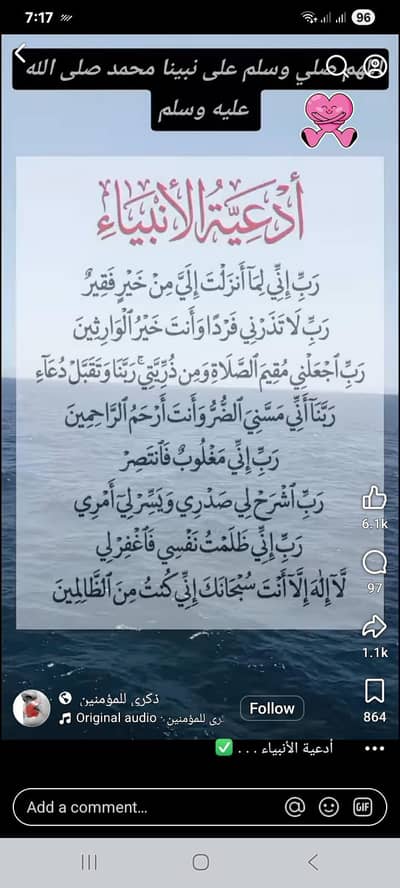 7:17
96
صلي وسلم على نبينا محمد صلى الله
عليه وسلم
أدعية الأنبياء
رَبِّ إِنِّي لِمَا أَنزَلْتَ إِلَيَّ مِنْ خَيْرٍ فَقِيرٌ
رَبِّ لَا تَذَرْنِي فَرْدًا وَأَنتَ خَيْرُ الْوَارِثِينَ
رَبِّ ٱجْعَلْنِي مُقِيمَ الصَّلَاةِ وَمِن ذُرِّيَّتِي ۚ رَبَّنَا وَتَقَبَّلْ دُعَآءِ
رَبَّنَآ أَنِّي مَسَّنِيَ الضُّرُّ وَأَنتَ أَرْحَمُ الرَّاحِمِينَ
رَبِّ إِنِّي مَغْلُوبٌ فَٱنتَصِرْ
رَبِّ اشْرَحْ لِي صَدْرِي وَيَسِّرْ لِيٓ أَمْرِي
رَبِّ إِنِّي ظَلَمْتُ نَفْسِي فَٱغْفِرْ لِي
لَّآ إِلَٰهَ إِلَّآ أَنْتَ سُبْحَانَكَ إِنِّي كُنتُ مِنَ ٱلظَّالِمِينَ
6.1k
97
1.1k
864
ذكرى للمؤمنين
Follow
Original audio · رى للمؤمنين
أدعية الأنبياء . . . ✅
Add a comment...
GIF